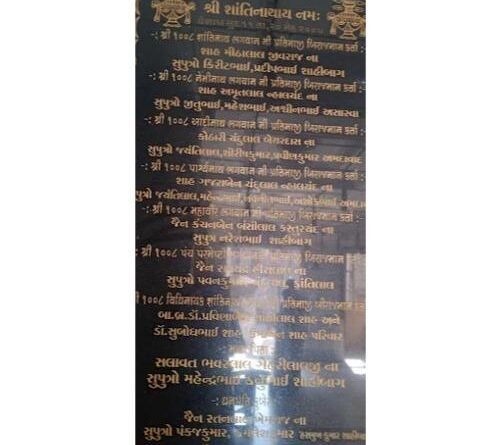 શ્રી શાંતિનાથાય નમઃ
-: શ્રી ૧૦૦૮ શાંતિનાથ ભગવાન ની પ્રતિમાજી બિરાજમાન કર્તા :-
શાહ મીઠાલાલ જીવરાજ ના
સુપુત્રો કિરીટભાઈ,પ્રદીપભાઈ શાહીબાગ
-: શ્રી ૧૦૦૮ નેમીનાથ ભગવાન ની પ્રતિમાજી બિરાજમાન કર્તા :-
શાહ અમૃતલાલ ન્હાલચંદ ના
સુપુત્રો જીતુભાઈ,મહેશભાઈ,અશ્વીનભાઈ અસારવા
-: શ્રી ૧૦૦૮ આદીનાથ ભગવાન ની પ્રતિમાજી બિરાજમાન કર્તા :-
કોઠારી ચંદુલાલ બેચરદાસ ના
સુપુત્રો જયંતિલાલ,શીરીષકુમાર,પ્રવીણકુમાર અમદાવાદ
-: શ્રી ૧૦૦૮ પાર્શ્વનાથ ભગવાન ની પ્રતિમાજી બિરાજમાન કર્તા :-
શાહ ગજરાબેન ચંદુલાલ ન્હાલચંદ ના
પુત્રો જયંતિલાલ,મહેન્દ્રભાઈ,
-: શ્રી ૧૦૦૮ મહાવીર ભગવાન ની પ્રતિમાજી બિરાજમાન કર્તા :-
જૈન કંચનબેન બંસીલાલ કસ્તુરચંદ ના
સુપુત્ર નરેશભાઈ શાહીબાગ
શ્રી ૧૦૦૮ પંચ પરમેષ્ઠી પ્રતિમાજી બિરાજમાન કર્તા
જૈન
સુપુત્રો પવનકુમાર કાંતિલાલ
શ્રી ૧૦૦૮ વિધિનાયક શાંતિનાથ પ્રતિમાજી બીરાજમાન કર્તા
બા.બ્ર.ડૉ.પ્રવિણાબેન શાહ અને
ડૉ.સુબોધભાઈ શાહ, શાહ પરિવાર
સલાવત ભવરલાલ ગેહરીલાલજી ના
સુપુત્રો મહેન્દ્રભાઈ કનુભાઈ શાહીબાગ
જૈન રતનલાલ ના
સુપુત્રો પંકજકુમાર,